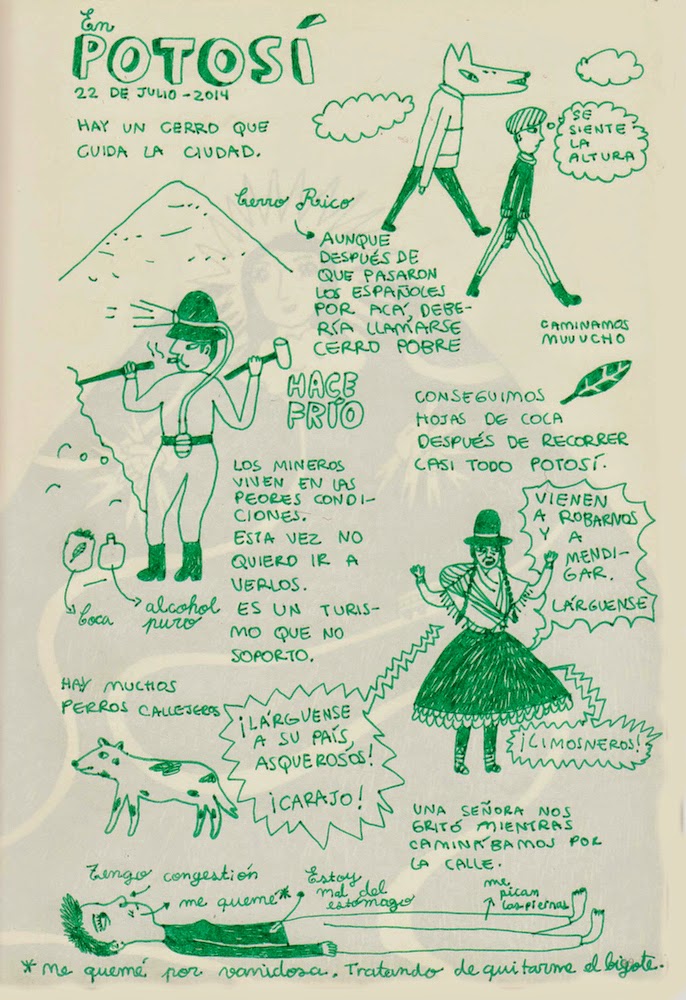 En
POTOSÍ
22 DE JULIO - 2014
HAY UN CERRO QUE
CUIDA LA CIUDAD.
SE
SIENTE
LA
ALTURA
Cerro Rico
AUNQUE
DESPUÉS DE
QUE PASARON
LOS ESPAÑOLES
POR ACÁ, DEBE-
RÍA LLAMARSE
CERRO POBRE
CAMINAMOS
MUUUCHO
HACE
FRÍO
CONSEGUIMOS
HOJAS DE COCA
DESPUÉS DE RECORRER
CASI TODO POTOSÍ.
LOS MINEROS
VIVEN EN LAS
PEORES CONDI-
CIONES.
ESTA VEZ NO
QUIERO IR A
VERLOS.
ES UN TURIS-
MO QUE NO
SOPORTO.
Coca
alcohol
puro
VIENEN
A ROBARNOS
Y A
MENDI-
GAR.
LÁRGUENSE
HAY MUCHOS
PERROS CALLEJEROS
¡LÁRGUENSE
A SU PAÍS,
ASQUEROSOS!
¡CARAJO!
¡LIMOSNEROS!
UNA SEÑORA NOS
GRITÓ MIENTRAS
CAMINÁBAMOS POR
LA CALLE.
Tengo congestión
me quemé*
Estoy
mal del
estómago
me
pican
las piernas
* me quemé por vanidosa. Tratando de quitarme el bigote.